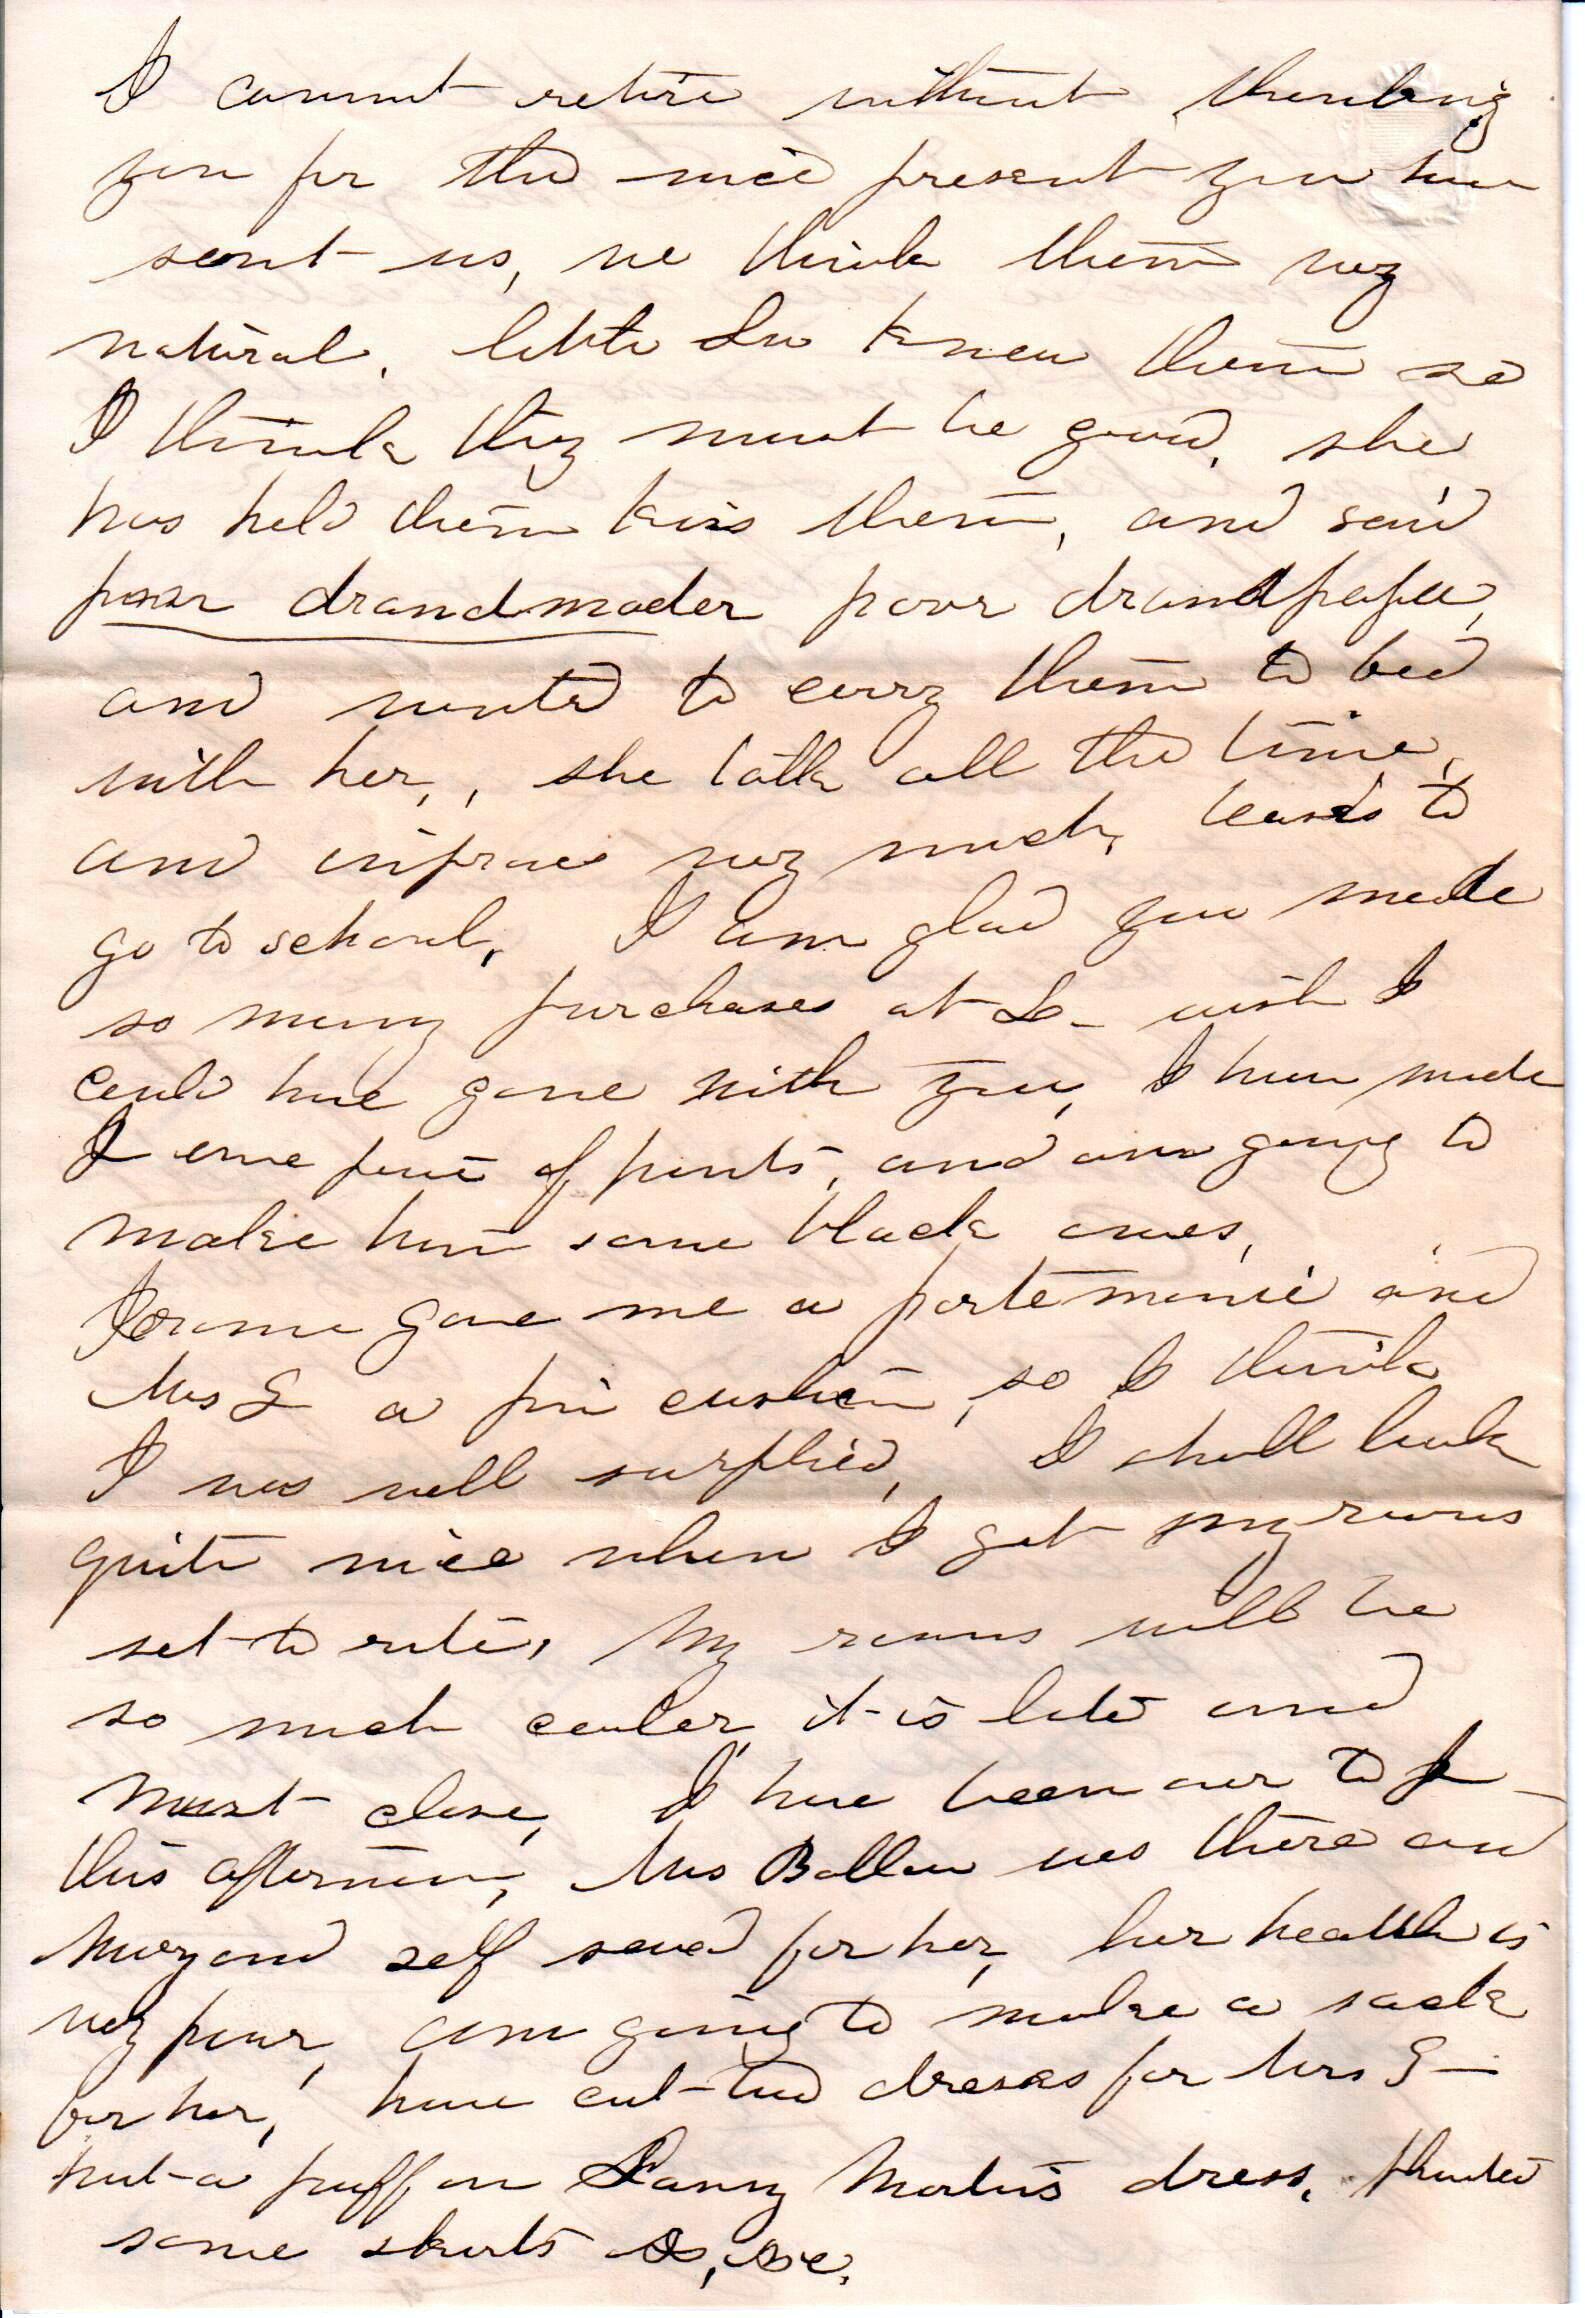 I cannot retire without thanking
you for the nice present you have
sent us, we think them very
natural. little Lu knew them so
I think they must be good, she
has held them kiss them, and said
poor drandmoder poor drandpapa,
and wanted to carry them to bed
with her,, she talk all the time,
and improves very much, wants to
go to school, I am glad you made
so many purchases at L- wish I
could have gone with you, I have made
J one pair of pants, and am going to
make him some black ones,
Jerome gave me a portemonie and
Mrs G a pin cushion, so I think
I was well surplied, I shall look
quite nice when I get my rooms
set to rite, My rooms will be
so much cooler, it is late and
must close, I have been over to
this afternoon, Mrs Ballou was there and
Mary and self sewed for her, her health is
very poor, am going to make a sack
for her, have cut two dresses for Mrs G-
put a puff on Fanny dress,
some skirts